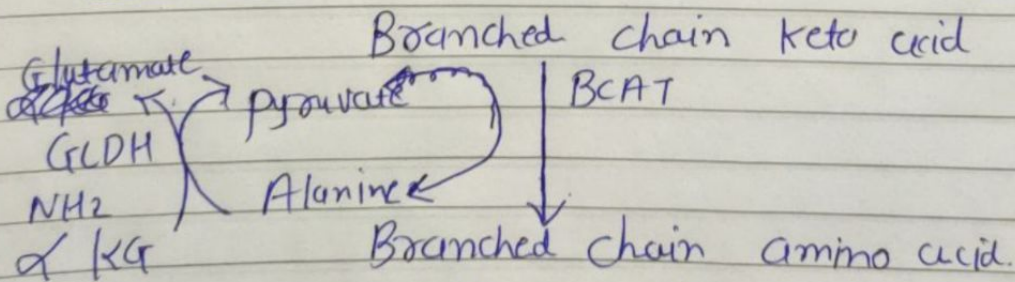 Branched chain keto acid
Glutamate
pyruvate BCAT
GLDH
Alanine
NH2
α KG Branched chain amino acid.